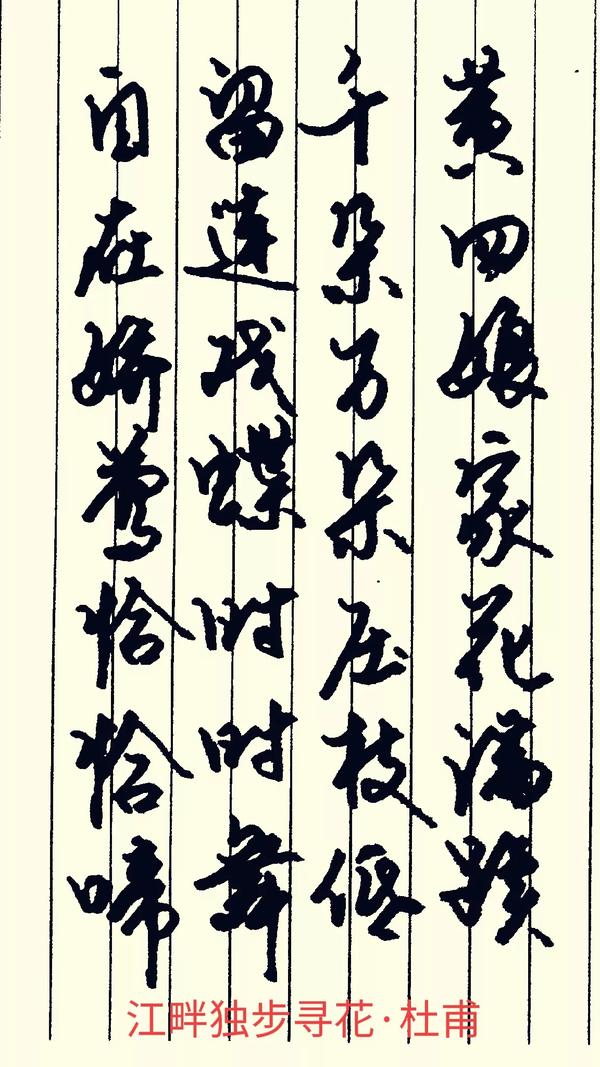 黄四娘家花满蹊
千朵万朵压枝低
留连戏蝶时时舞
自在娇莺恰恰啼
江畔独步寻花·杜甫